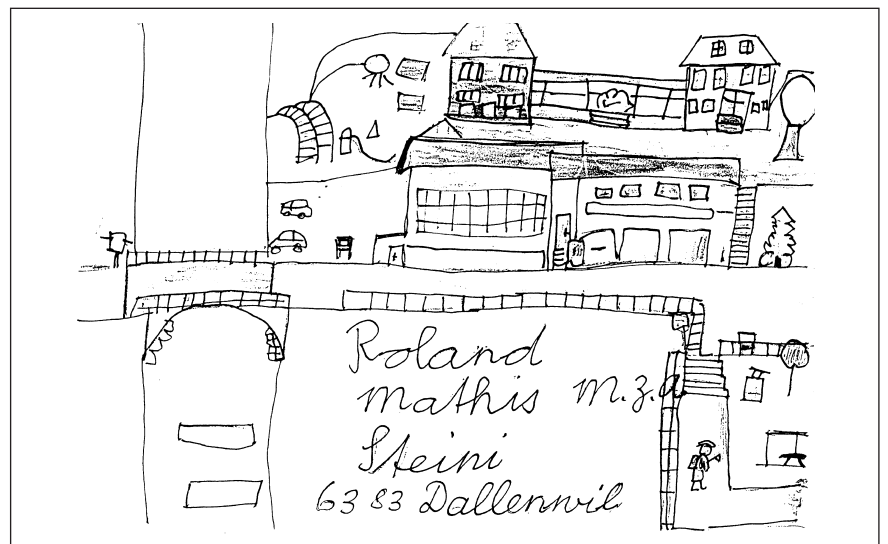 Roland
Mathis M.z.a
Steini
6383 Dallenwil